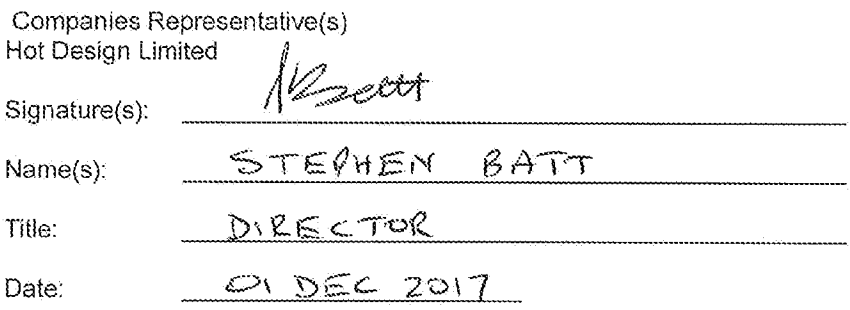 Companies Representative(s)
Hot Design Limited
Signature(s):
Name(s): STEPHEN BATT
Title: DIRECTOR
Date: 01 DEC 2017